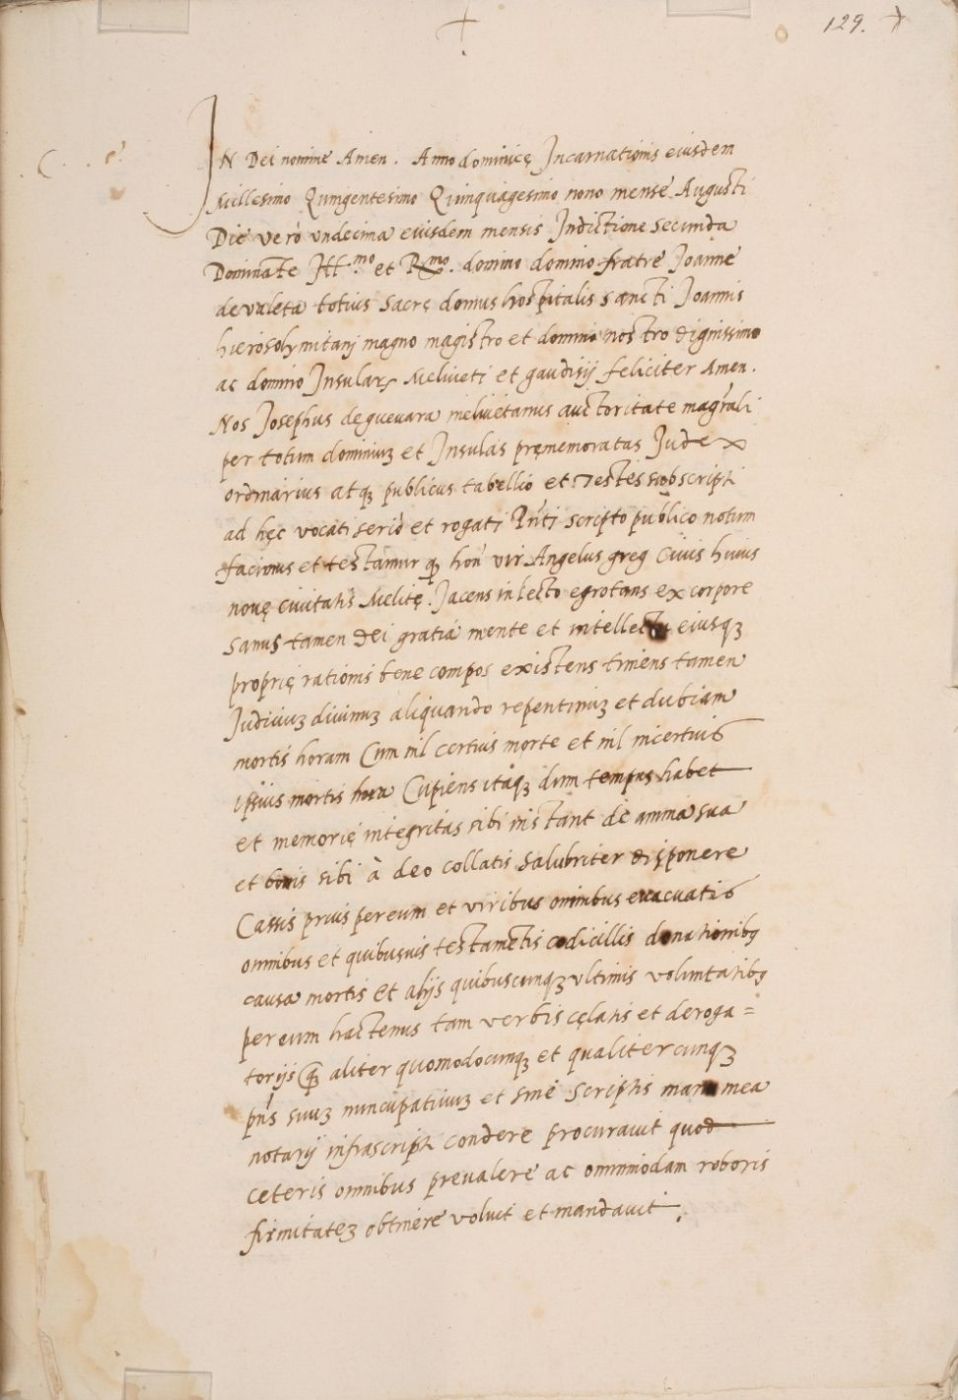 129.
IN Dei nomine Amen. Anno dominicę Incarnationis eiusdem
Millesimo Quingentesimo Quinquagesimo nono mense Augusti
Die verò vndecima eiusdem mensis Indictione secunda
Dominate Ill.mo et R.mo domino domino fratre Joanne
de valeta totius sacrę domus hospitalis sancti Joannis
hierosolymitanj magno magistro et domino nostro dignissimo
ac domino Insularz Meliueti et gaudisij feliciter Amen.
Nos Josephus deguevara meliuetanus auctoritate magrali
per totum dominiuz et Insulas pręmemoratas Judex
ordinarius atqz publicus tabellio et Testes subscripti
ad hęc vocati seriò et rogati Pnti scripto publico notum
facimus et testamur qz hon vir Angelus greg Ciuis huius
nouę ciuitatis Melitę. Jacens in lecto egrotans ex corpore
sanus tamen dei gratia mente et intellectu eiusqz
proprię rationis bene compos existens timens tamen
Judiuuz diuinuz aliquando repentinuz et dubiam
mortis horam Cum nil certius morte et nil incertius
ipsius mortis hora Cupiens itaqz dum tempus habet
et memorię integritas sibi instant de anima sua
et bonis sibi à deo collatis salubriter disponere
Cassis prius per eum et viribus omnibus euacuatis
omnibus et quibusuis testamentis codicillis donationibz
causa mortis et alijs quibuscunqz vltimis voluntatibz
per eum hactenus tam verbis cęlatis et deroga=
torijs qz aliter quomodocunqz et qualitercunqz
pns suuz nuncupatiuuz et sine scriptis manu mea
notarij infrascripti condere procurauit quod
ceteris omnibus preualere ac omnimodam roboris
firmitatez obtinere voluit et mandauit.